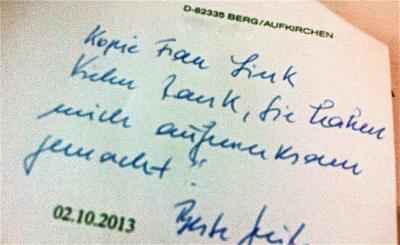 D-82335 BERG/AUFKIRCHEN
Kopie Frau Link
Vielen Dank, Sie haben
mich aufmerksam
gemacht!
02.10.2013 Beste